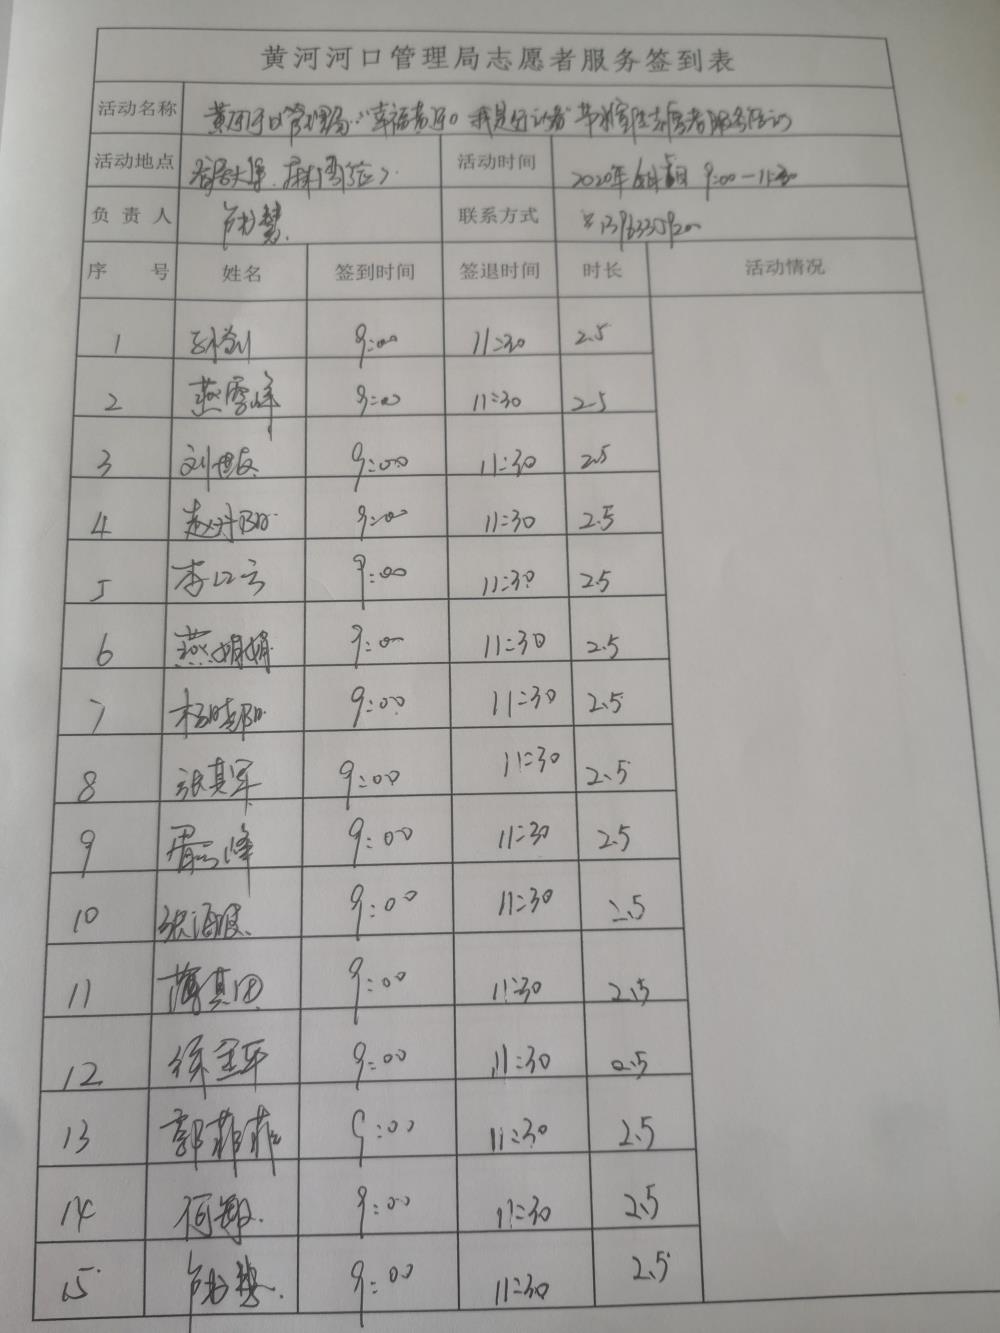 黄河河口管理局志愿者服务签到表
活动名称 黄河河口管理局"幸福黄河 我是行动者"节水宣传志愿者服务活动
活动地点 活动时间 2020年6月5日 9:00-11:30
负责人 联系方式
序号 姓名 签到时间 签退时间 时长 活动情况
1 9:00 11:30 2.5
2 燕雪峰 9:00 11:30 2.5
3 刘 9:00 11:30 2.5
4 赵丹阳 9:00 11:30 2.5
5 李 9:00 11:30 2.5
6 燕娟娟 9:00 11:30 2.5
7 杨晓阳 9:00 11:30 2.5
8 张其军 9:00 11:30 2.5
9 峰 9:00 11:30 2.5
10 张海波 9:00 11:30 2.5
11 薄其田 9:00 11:30 2.5
12 徐 9:00 11:30 2.5
13 郭菲菲 9:00 11:30 2.5
14 何翔 9:00 11:30 2.5
15 9:00 11:30 2.5